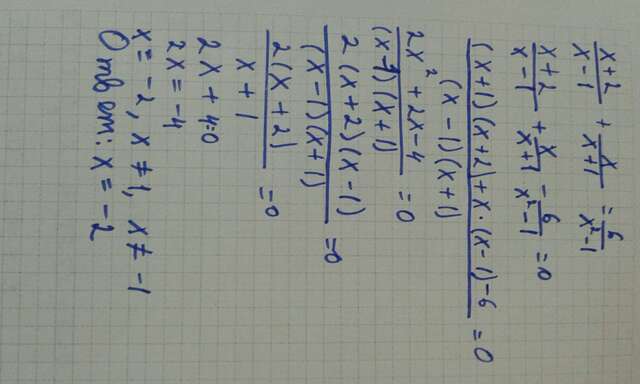 (x+2)/(x-1) + x/(x+1) = 6/(x²-1)
(x+2)/(x-1) + x/(x+1) - 6/(x²-1) = 0
((x+1)(x+2)+x·(x-1)-6)/((x-1)(x+1)) = 0
(2x²+2x-4)/((x-1)(x+1)) = 0
(2(x+2)(x-1))/((x-1)(x+1)) = 0
(2(x+2))/(x+1) = 0
2x+4=0
2x=-4
x=-2, x≠1, x≠-1
Ответ: x=-2